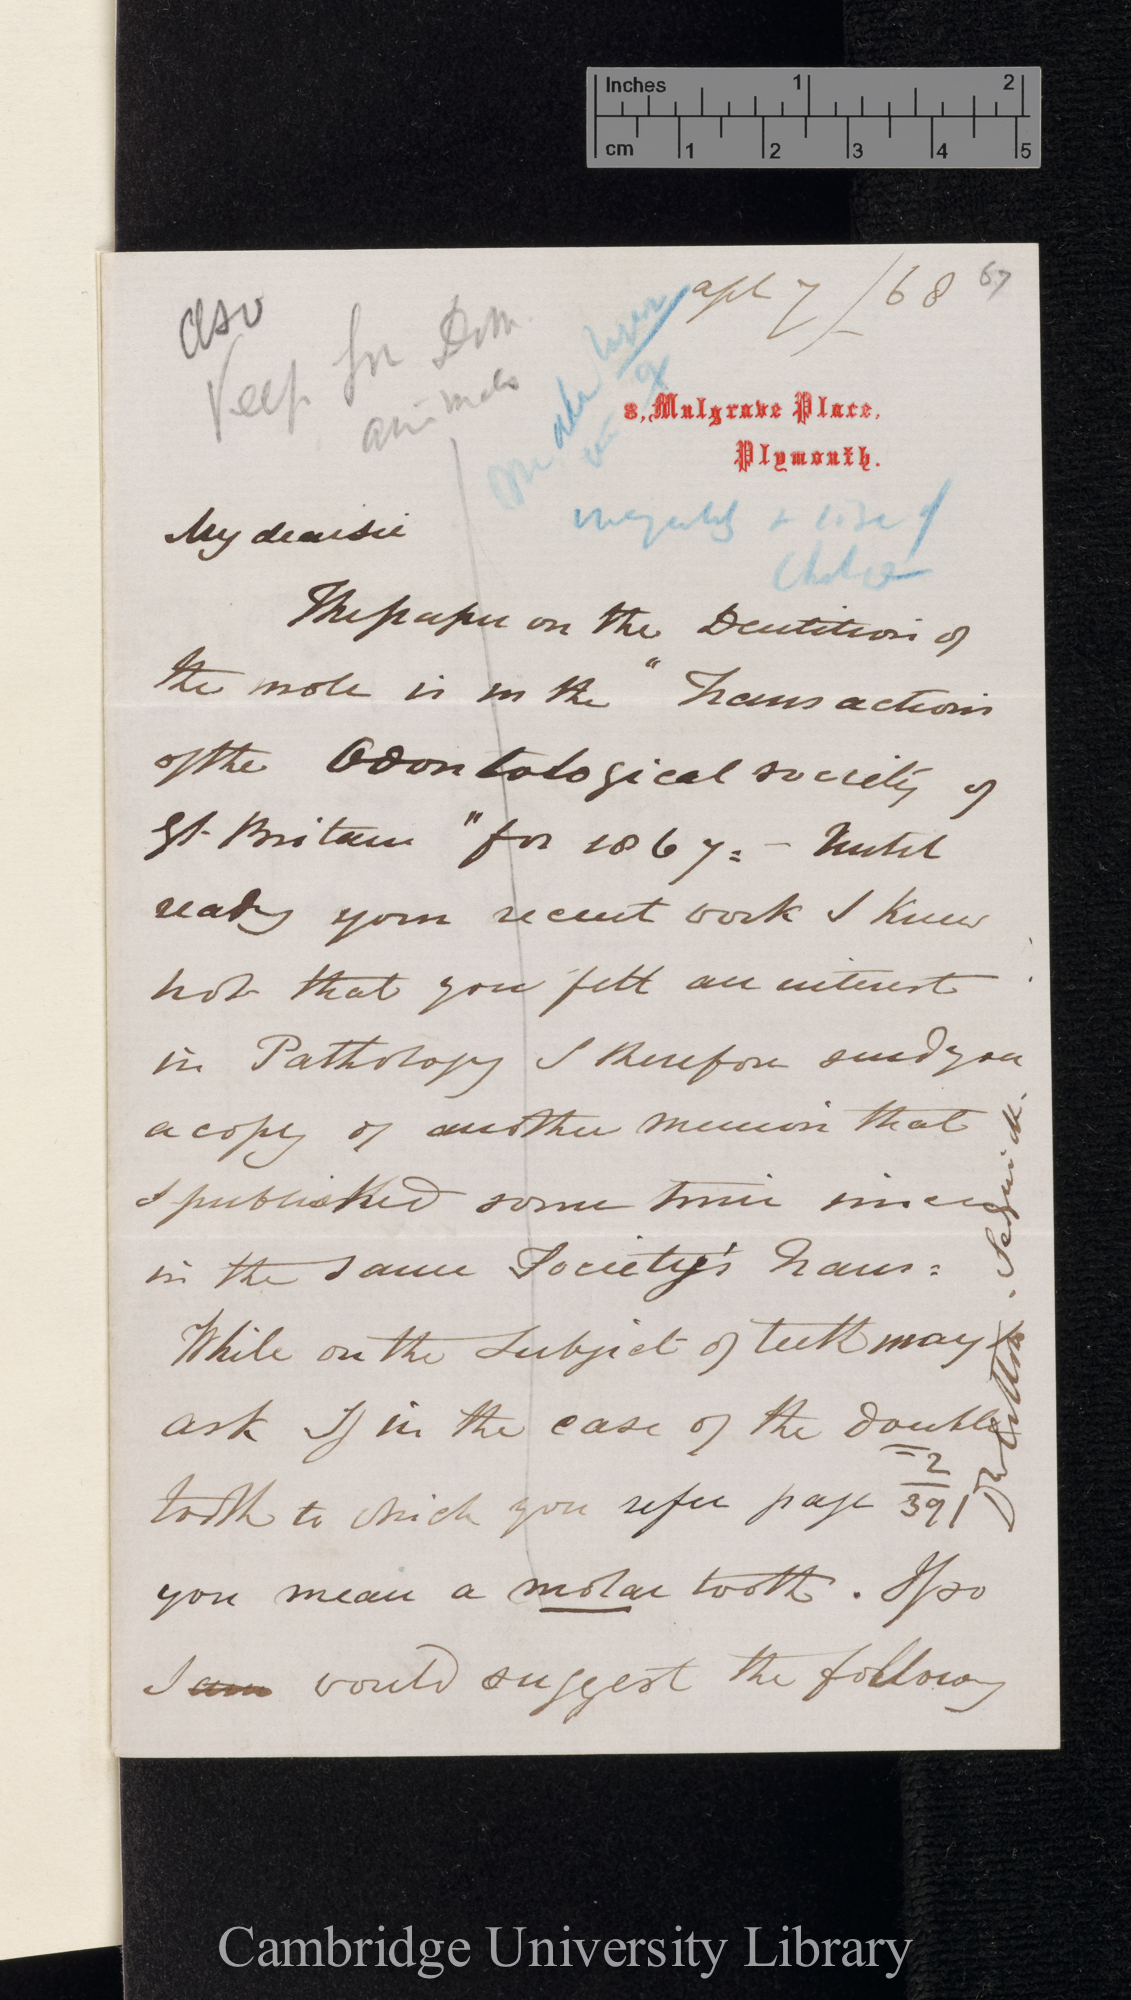 Inches 1 2
cm 1 2 3 4 5
apl 7/68
67
Keep for Dom.
animals
8, Mulgrave Place,
Plymouth.
My dear sir
The paper on the Dentition of
the mole is in the "Transactions
of the Odontological society of
Gt. Britain" for 1867: - Until
readg your recent work I knew
not that you felt an interest
in Pathology I therefore send you
a copy of another memoir that
I published some time since
in the same Society's Trans:
While on the subject of teeth may I
ask If in the case of the double
tooth to which you refer page 2/391
you mean a molar tooth. If so
I am would suggest the following
Cambridge University Library